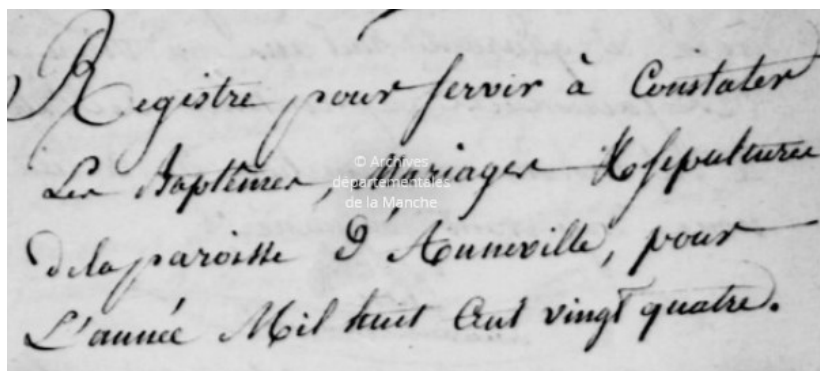 Registre pour servir à Constater
Les Baptêmes, Mariages & sepultures
de la paroisse D'Anneville, pour
L'année Mil huit Cent vingt quatre.
© Archives
départementales
de la Manche